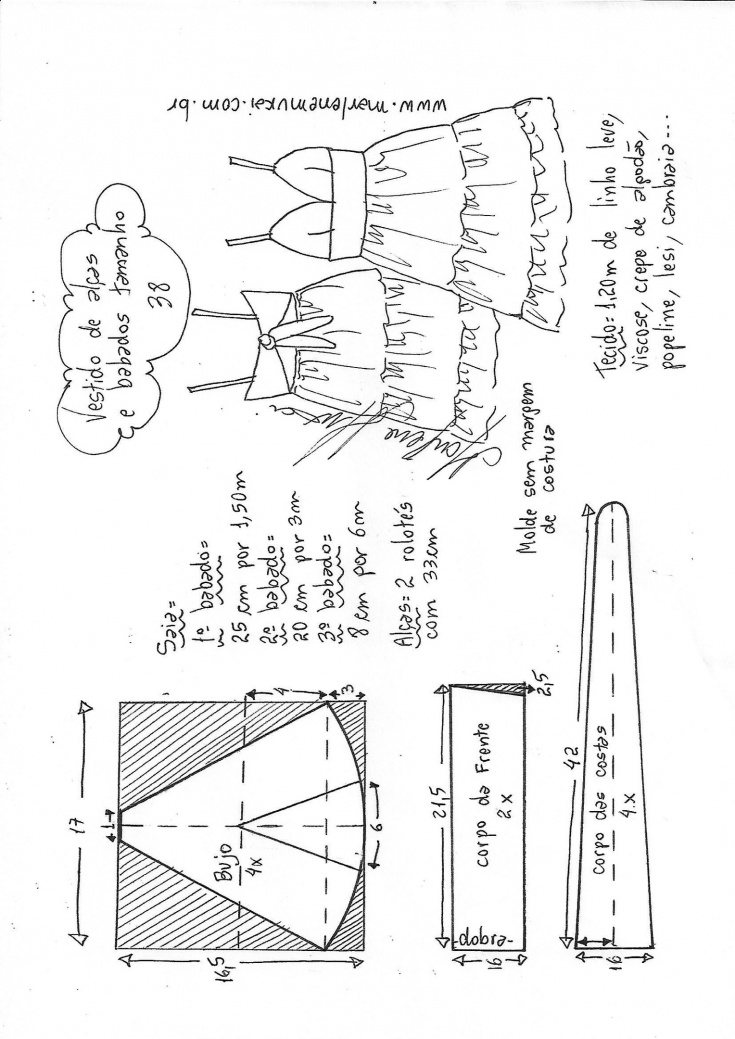 Vestido de alças
e babados tamanho
38
www.marlenemukai.com.br
Saia=
1º babado=
25 cm por 1,50m
2º babado=
20 cm por 3m
3º babado=
8 cm por 6m
Alças= 2 rolotés
com 33cm
Molde sem margem
de costura
Tecido= 1,20m de linho leve,
viscose, crepe de algodão,
popeline, lesi, cambraia...
17
1
16,5
Bujo
4x
4
3
6
21,5
corpo da Frente
2x
dobra
16
2,5
42
corpo das costas
4x
16